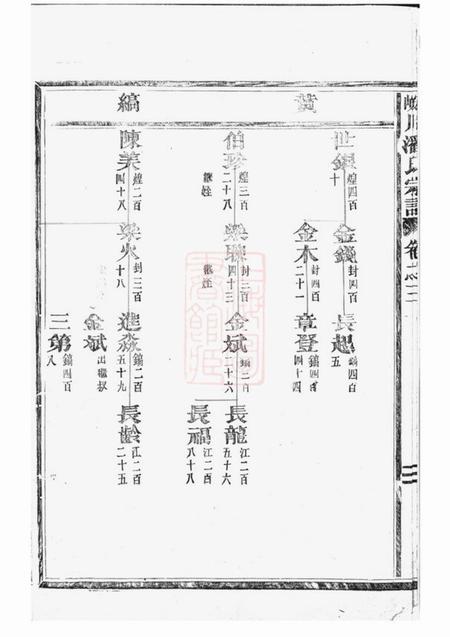 嵊川潘氏宗譜
卷之三
三
世銀
煌四百
十
金錢
封四百
長起
鎬四百
五
金木
封四百
二十一
章登
鎬四百
四十四
伯珍
煌三百
二十八
繼姓
樂聯
封三百
四十三
繼姓
金斌
鎬二百
二十六
長龍
江二百
五十六
長福
江二百
八十八
縞
陳美
煌二百
四十八
樂火
封三百
十八
進淼
鎬二百
五十九
長齡
江二百
二十五
金斌
出繼叔
三弟
鎬四百
八